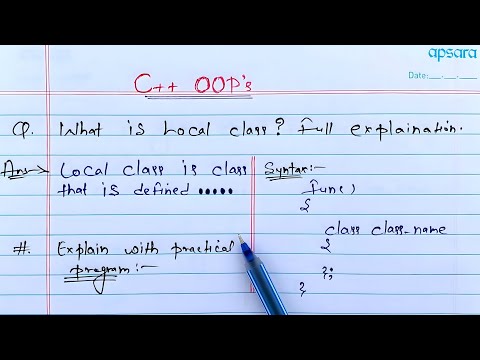 apsara
Date:___.___.___
C++ OOP's
Q. What is Local class? Full explaination.
Ans→ Local class is class
that is defined .....
#. Explain with practical
program:-
Syntax:-
func()
{
class class-name
{
};
}